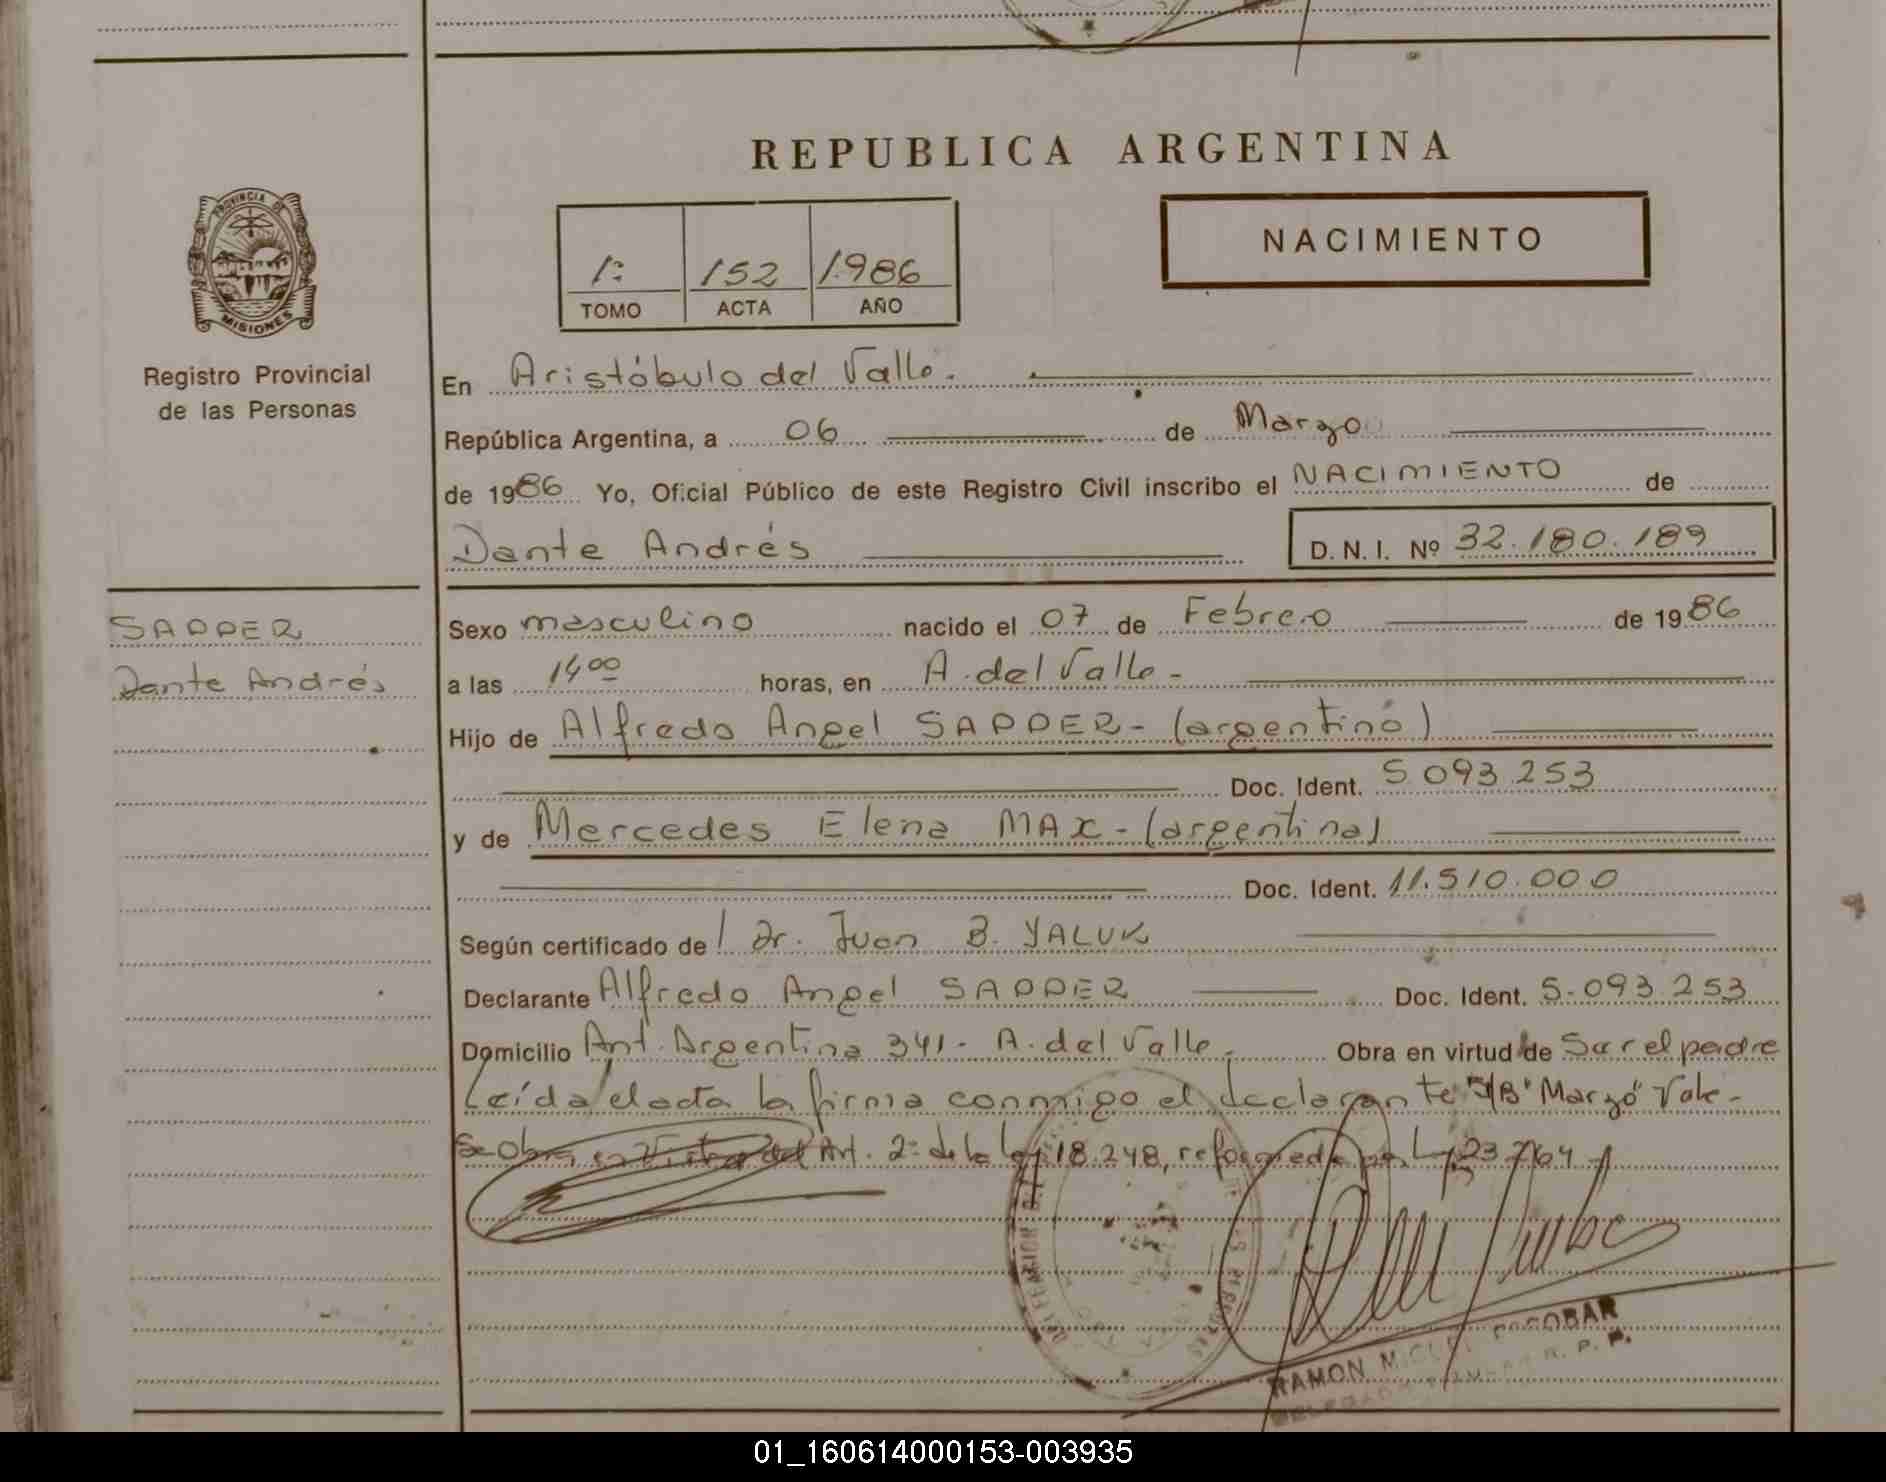 REPUBLICA ARGENTINA
NACIMIENTO
1º 152 1986
TOMO ACTA AÑO
PROVINCIA DE
MISIONES
Registro Provincial
de las Personas
En Aristóbulo del Valle.
República Argentina, a 06 de Marzo
de 1986 Yo, Oficial Público de este Registro Civil inscribo el NACIMIENTO de
Dante Andrés D. N. I. Nº 32.180.189
SAPPER
Dante Andrés
Sexo masculino nacido el 07 de Febrero de 1986
a las 14 00 horas, en A. del Valle -
Hijo de Alfredo Angel SAPPER - (argentino)
Doc. Ident. 5.093.253
y de Mercedes Elena MAX - (argentina)
Doc. Ident. 11.510.000
Según certificado de Dr. Juan B. YALUK
Declarante Alfredo Angel SAPPER Doc. Ident. 5.093.253
Domicilio Ant. Argentina 341 - A. del Valle - Obra en virtud de Ser el padre
Leída el acta la firma conmigo el declarante S/B "Marzo" Vale -
Art. 2º de la Ley 18.248, reformada por Ley 23.764
RAMON MIGUEL ESCOBAR
R. P. P.
01_160614000153-003935